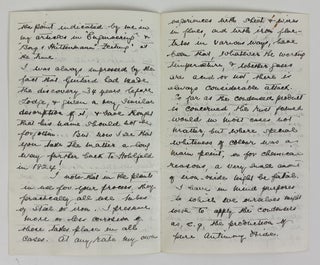 this point indicated by me in
my articles in "Engineering" &
Berg & Hüttenmann Zeitung at
the time.
I was always impressed by the
fact that Guitard had made
the discovery 34 years before
Lodge, & given a very similar
description of it, & have hoped
that his name should not be
forgotten. But now I see that
you take the matter a long
way further back to Hohlfeld
in 1824!
I note that in the plants
in use for your process, they
practically all use tubes
of steel or iron. I presume
more or less corrosion of
these takes place in all
cases. At any rate my own
experiences with sheet & pipes
in flues, and with iron flue-
tubes in various ways, have
been that whatever the working
temperature & whether gases
are acid or not, there is
always considerable attack.
So far as the condensed product
is concerned the rust formed
would in most cases not
matter, but where special
whiteness of colour was a
main point, or for chemical
reasons, a very small amount
of iron oxide might be fatal.
I have in mind purposes
to which we ourselves might
wish to apply the condensers
as, e.g. the production of
pure Antimony Oxide.